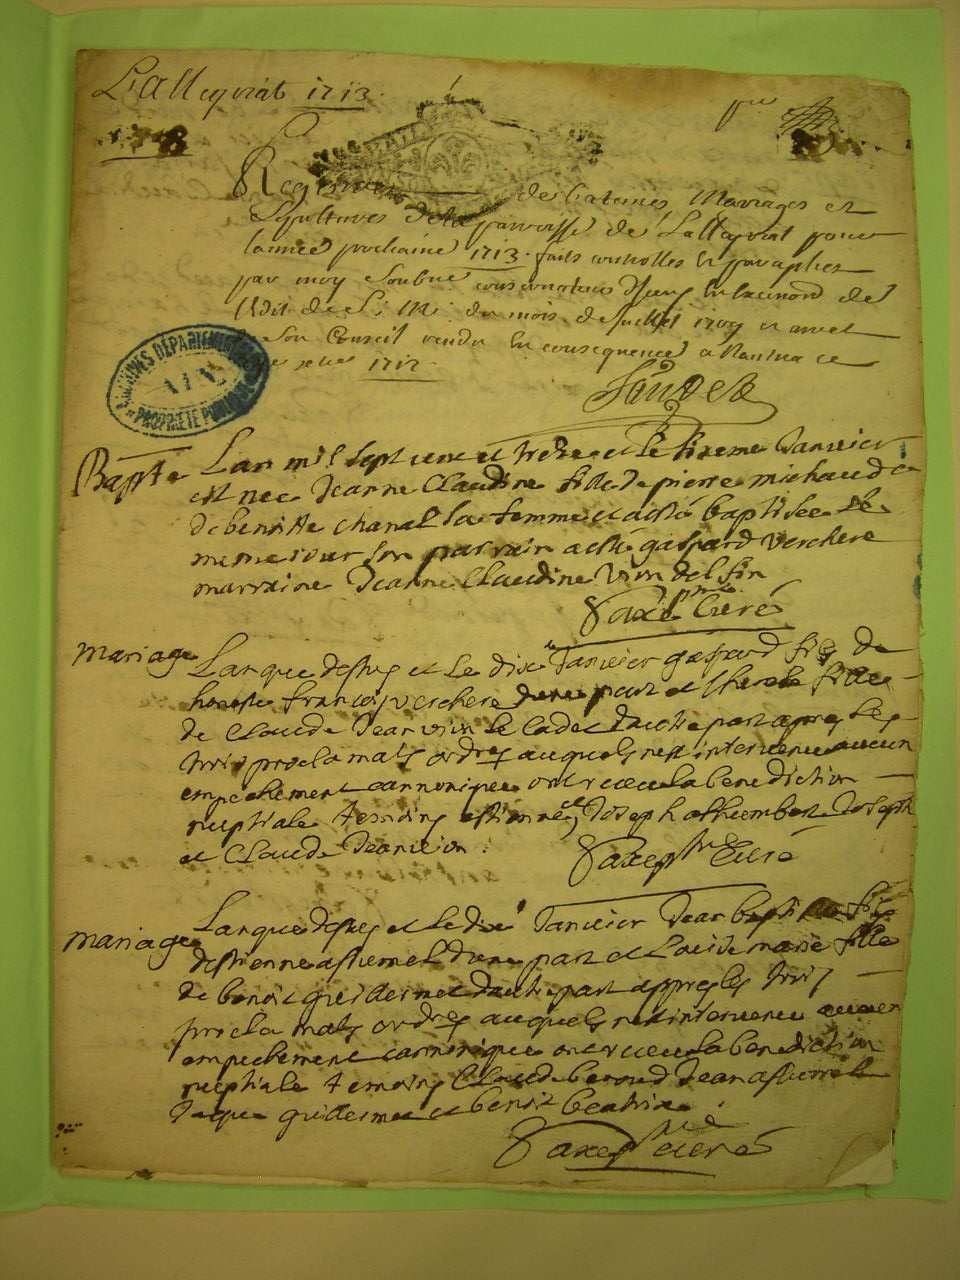 Lalleyriat 1713.
Registre des Batemes Mariages et
Sepultures de la parroisse de Lalleyriat pour
lannee prochaine 1713. faits controlles et paraphes
par moy Soubne conservateur
Ledit de S. M. du mois de Juillet 1709 et arret
de Son Conseil rendu En consequence a Nantua ce
1712
ARCHIVES DÉPARTEMENTALES
AIN
PROPRIÉTÉ PUBLIQUE
Bapte Lan mil sept cent et treize et le sixeme Janvier
est nee Jeanne Claudine fille de pierre michaud et
de benoitte chanal sa femme et a esté baptisee le
meme iour son parrain a esté gaspard verchere
marraine Jeanne Claudine
Curé
mariage Lan que dessus et le dix Janvier gaspard fils de
honeste francois verchere dune part et fille
de Claude Jeanvion le Cadet dautre part apres les
trois proclamats ordres auquels nest intervenu aucun
empechement cannonique ont receu la benediction
nuptiale temoins estienne et Joseph Joseph
et Claude Jeanvion.
Curé
mariage Lan que dessus et le dix Janvier Jean baptiste fils
destienne dune part et marie fille
de benoit guillermet dautre part appres les trois
proclamats ordres auquels nest intervenu aucun
empechement cannonique ont receu la benediction
nuptiale temoins Claude beroud Jean
Jaque guillermet et benoit beatrix.
curé